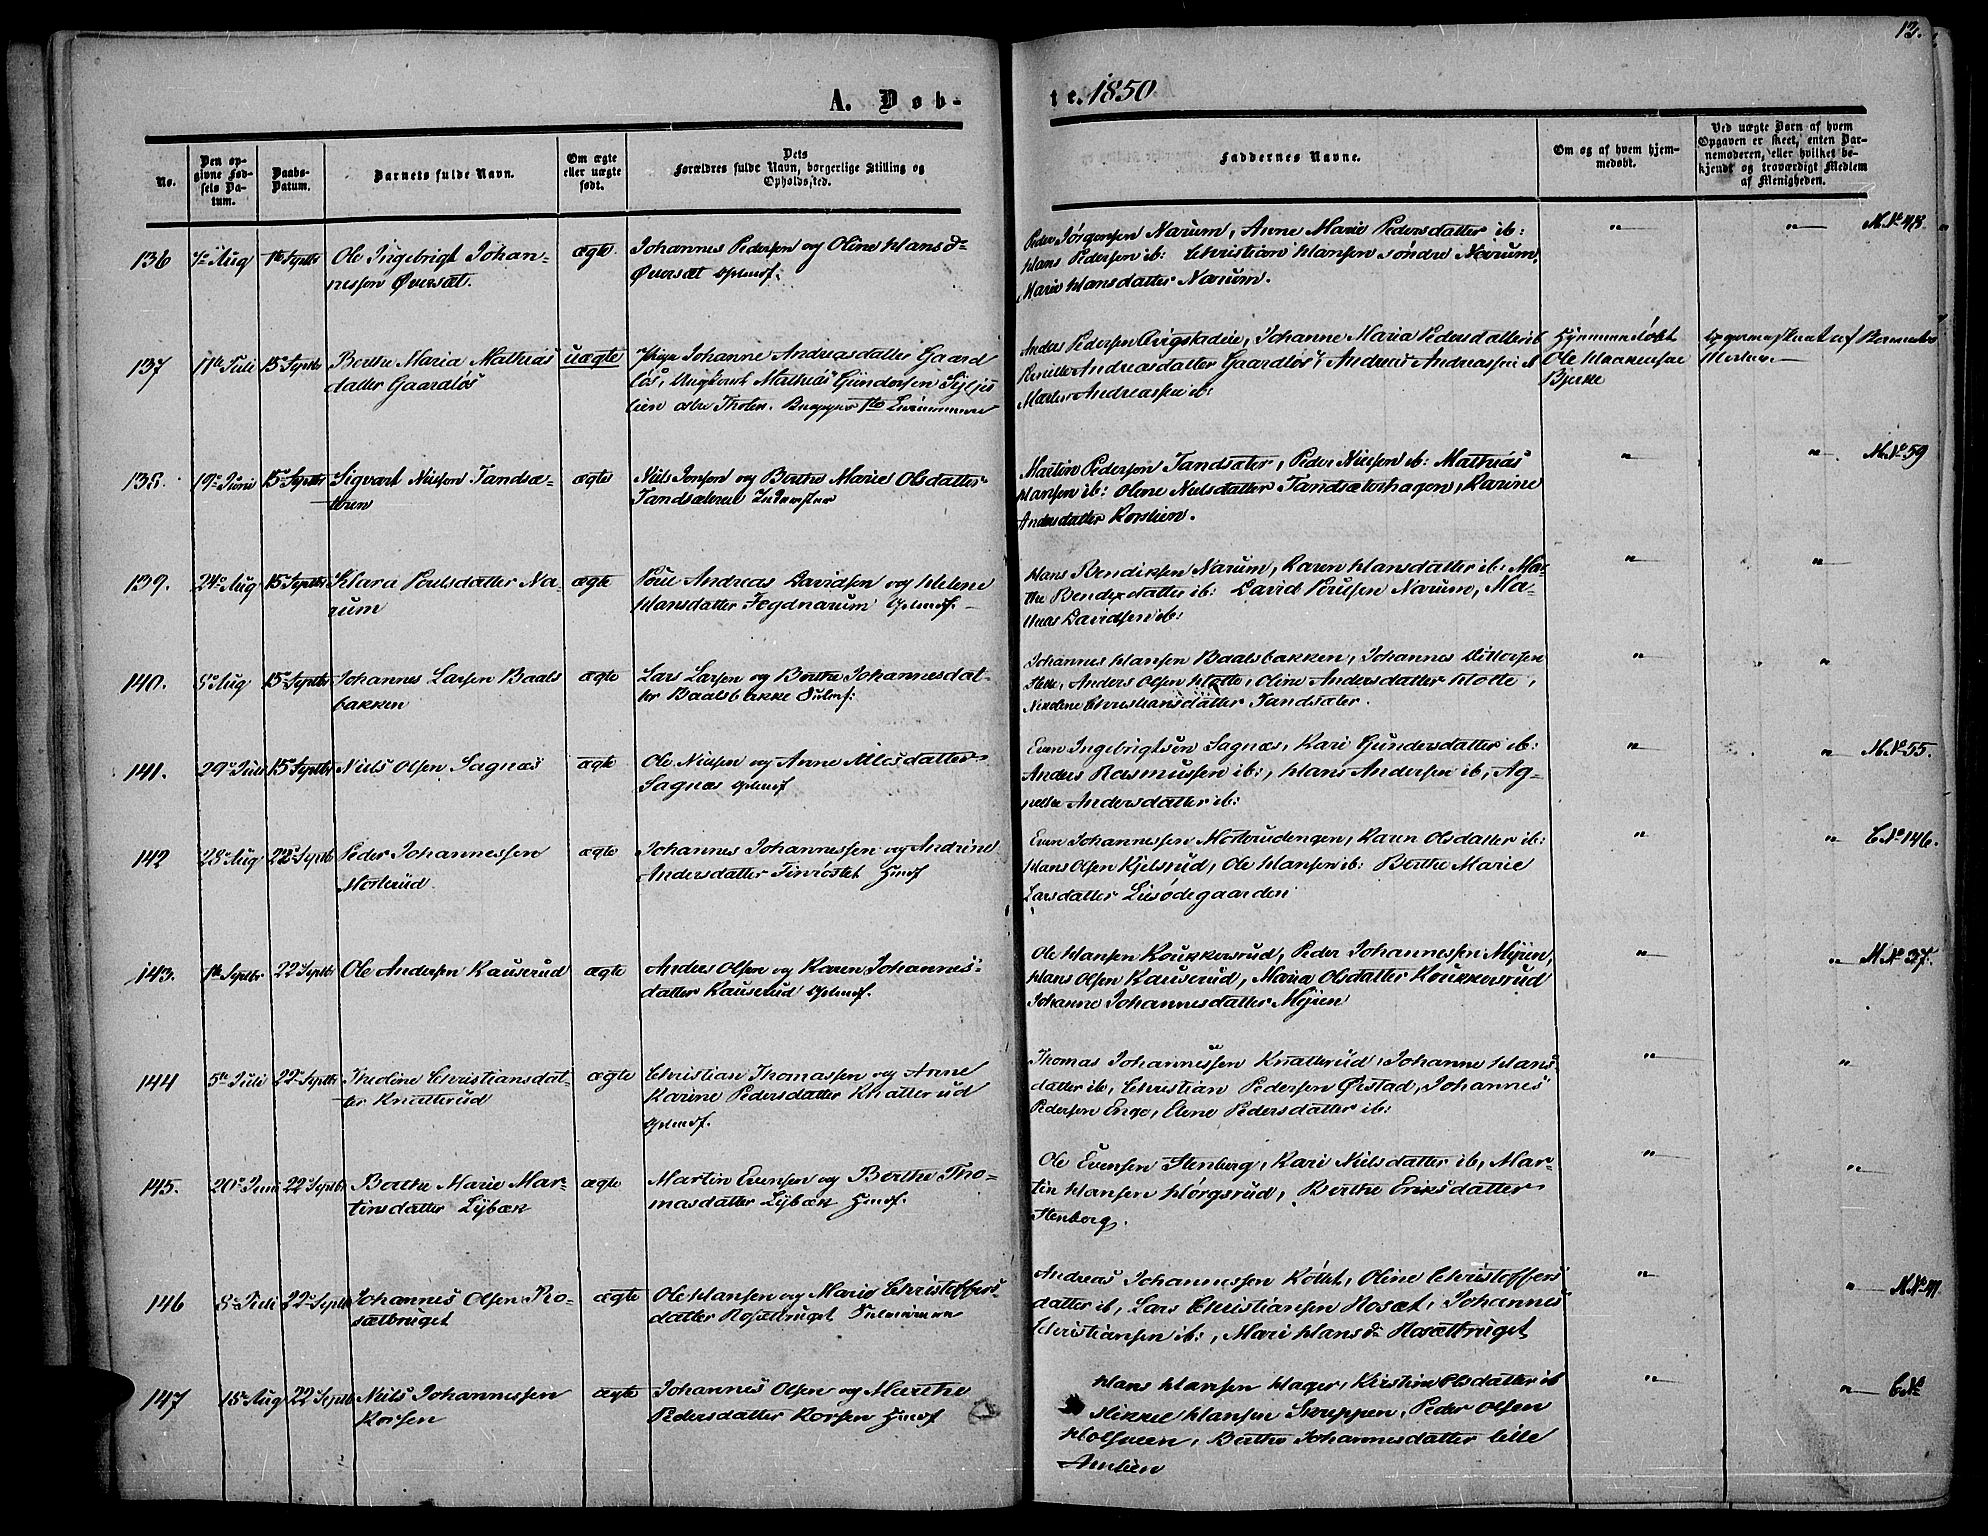 12.
A. Døb-
te. 1850
No.
Den op-
givne Fød-
sels Da-
tum.
Daabs-
Datum.
Barnets fulde Navn.
Om ægte
eller uægte
født.
Dets
Forældres fulde Navn, borgerlige Stilling og
Opholdssted.
Faddernes Navne.
Om og af hvem hjem-
medøbt.
Ved uægte Børn af hvem
Opgaven er skeet, enten Bar-
nemoderen, eller hvilket be-
kjendt og troværdigt Medlem
af Menigheden.
136 Aug Septbr Ole Ingebrigt Johan-
nessen Øversæt.
ægte
Johannes Pedersen og Oline Hansd
Øversæt
Peder Jørgensen Narum, Anne Marie Pedersdatter ib:
Hans Pedersen ib: Christian Hansen søndre Narum,
Marie Hansdatter Narum.
M.No 48.
137 11te Juli 15 Septbr Berthe Maria Mathias
datter Gaardløs
uægte
Pige Johanne Andreasdatter Gaard
løs, Ungkarl Mathias Gundersen
lien
Anders Pedersen Johanne Maria Pedersdatter ib
Pernille Andreasdatter Gaardløs, Andreas Andreassen
Martin Andreassen ib:
Hjemmedøbt
Ole Haakensen
Bjerke
af Barnets
Moder
138. 19 Juni 15 Septbr Sigvart Nielsen Tandsæ-
teren
ægte
Niels Jonsen og Berthe Marie Olsdatter
Tandsæteret Inderster
Martin Pedersen Tandsæter, Peder Nielsen ib: Mathias
Hansen ib: Olene Nielsdatter Tandsæterhagen, Karine
Andersdatter Korslien.
M.No 59
139. 24 Aug 15 Septbr Klara Poulsdatter Na-
rum
ægte
Poul Andreas Davidsen og Helene
Hansdatter Fegdnarum
Hans Bendiksen Narum, Karen Hansdatter ib: Mar-
the Bendixdatter ib: David Poulsen Narum, Ma-
thias Davidsen ib:
140. 8 Aug 15 Septbr Johannes Larsen Baals
bakken
ægte
Lars Larsen og Berthe Johannesdat-
ter Baalsbakke
Johannes Hansen Baalsbakken, Johannes
Anders Olsen Holte, Oline Andersdatter Holte,
Nicoline Christiansdatter Tandsæter.
141. 29 Juli 15 Septbr Niels Olsen Sagnæs
ægte
Ole Nielsen og Anne Nilsdatter
Sagnæs
Even Ingebrigtsen Sagnæs, Kari Gundersdatter ib:
Anders Rasmussen ib:, Hans Andersen ib, Ag-
nethe Andersdatter ib:
M.No 55.
142 28 Aug 22 Septb Peder Johannessen
Mosterud
ægte
Johannes Johannessen og Andrine
Andersdatter Finrøstet
Even Johannessen Mosterudengen, Karen Olsdatter ib:
Hans Olsen Kjelsrud, Ole Hansen ib: Berthe Marie
Larsdatter Liesødegaarden
C.No 146.
143. 1te Septbr 22 Septb Ole Andersen Kauserud
ægte
Anders Olsen og Karen Johannes-
datter Kauserud
Ole Hansen Koukkersrud, Peder Johannessen Myren,
Hans Olsen Kauserud, Maria Olsdatter Koukkersrud
Johanne Johannesdatter Myren
M.No 37.
144 5te Juli 22 Septbr Thedine Christiansdat-
ter Knatterud
ægte
Christian Thomassen og Anne
Karine Pedersdatter Knatterud
Thomas Johannessen Knatterud, Johanne Hans
datter ib, Christian Pedersen Ørstad, Johannes
Pedersen Enge, Elene Pedersdatter ib:
145. 20 Juni 22 Septbr Berthe Marie Mar-
tinsdatter Lybæk
ægte
Martin Evensen og Berthe Tho-
masdatter Lybæk
Ole Evensen Stenberg, Kari Nielsdatter ib, Mar-
tin Hansen Hørgsrud, Berthe Eriksdatter
Stenberg.
146 8 Juli 22 Septbr Johannes Olsen Ro-
sætbruget
ægte
Ole Hansen og Marie Christoffers-
datter Rosætbruget
Andreas Johannessen Køttet, Oline Christoffers
datter ib, Lars Christiansen Rosæt, Johannes
Christiansen ib:, Mari Hansd Rosætbruget
M.No
147 18 Aug 22 Septb Niels Johannessen
Korsen
ægte
Johannes Olsen og Marthe
Pedersdatter Korsen
Hans Hansen Hager, Kirstine Olsdatter ib
Mikkel Hansen Skruppen, Peder Olsen
Holsveen, Berthe Johannesdatter lille
Amlien
C.No